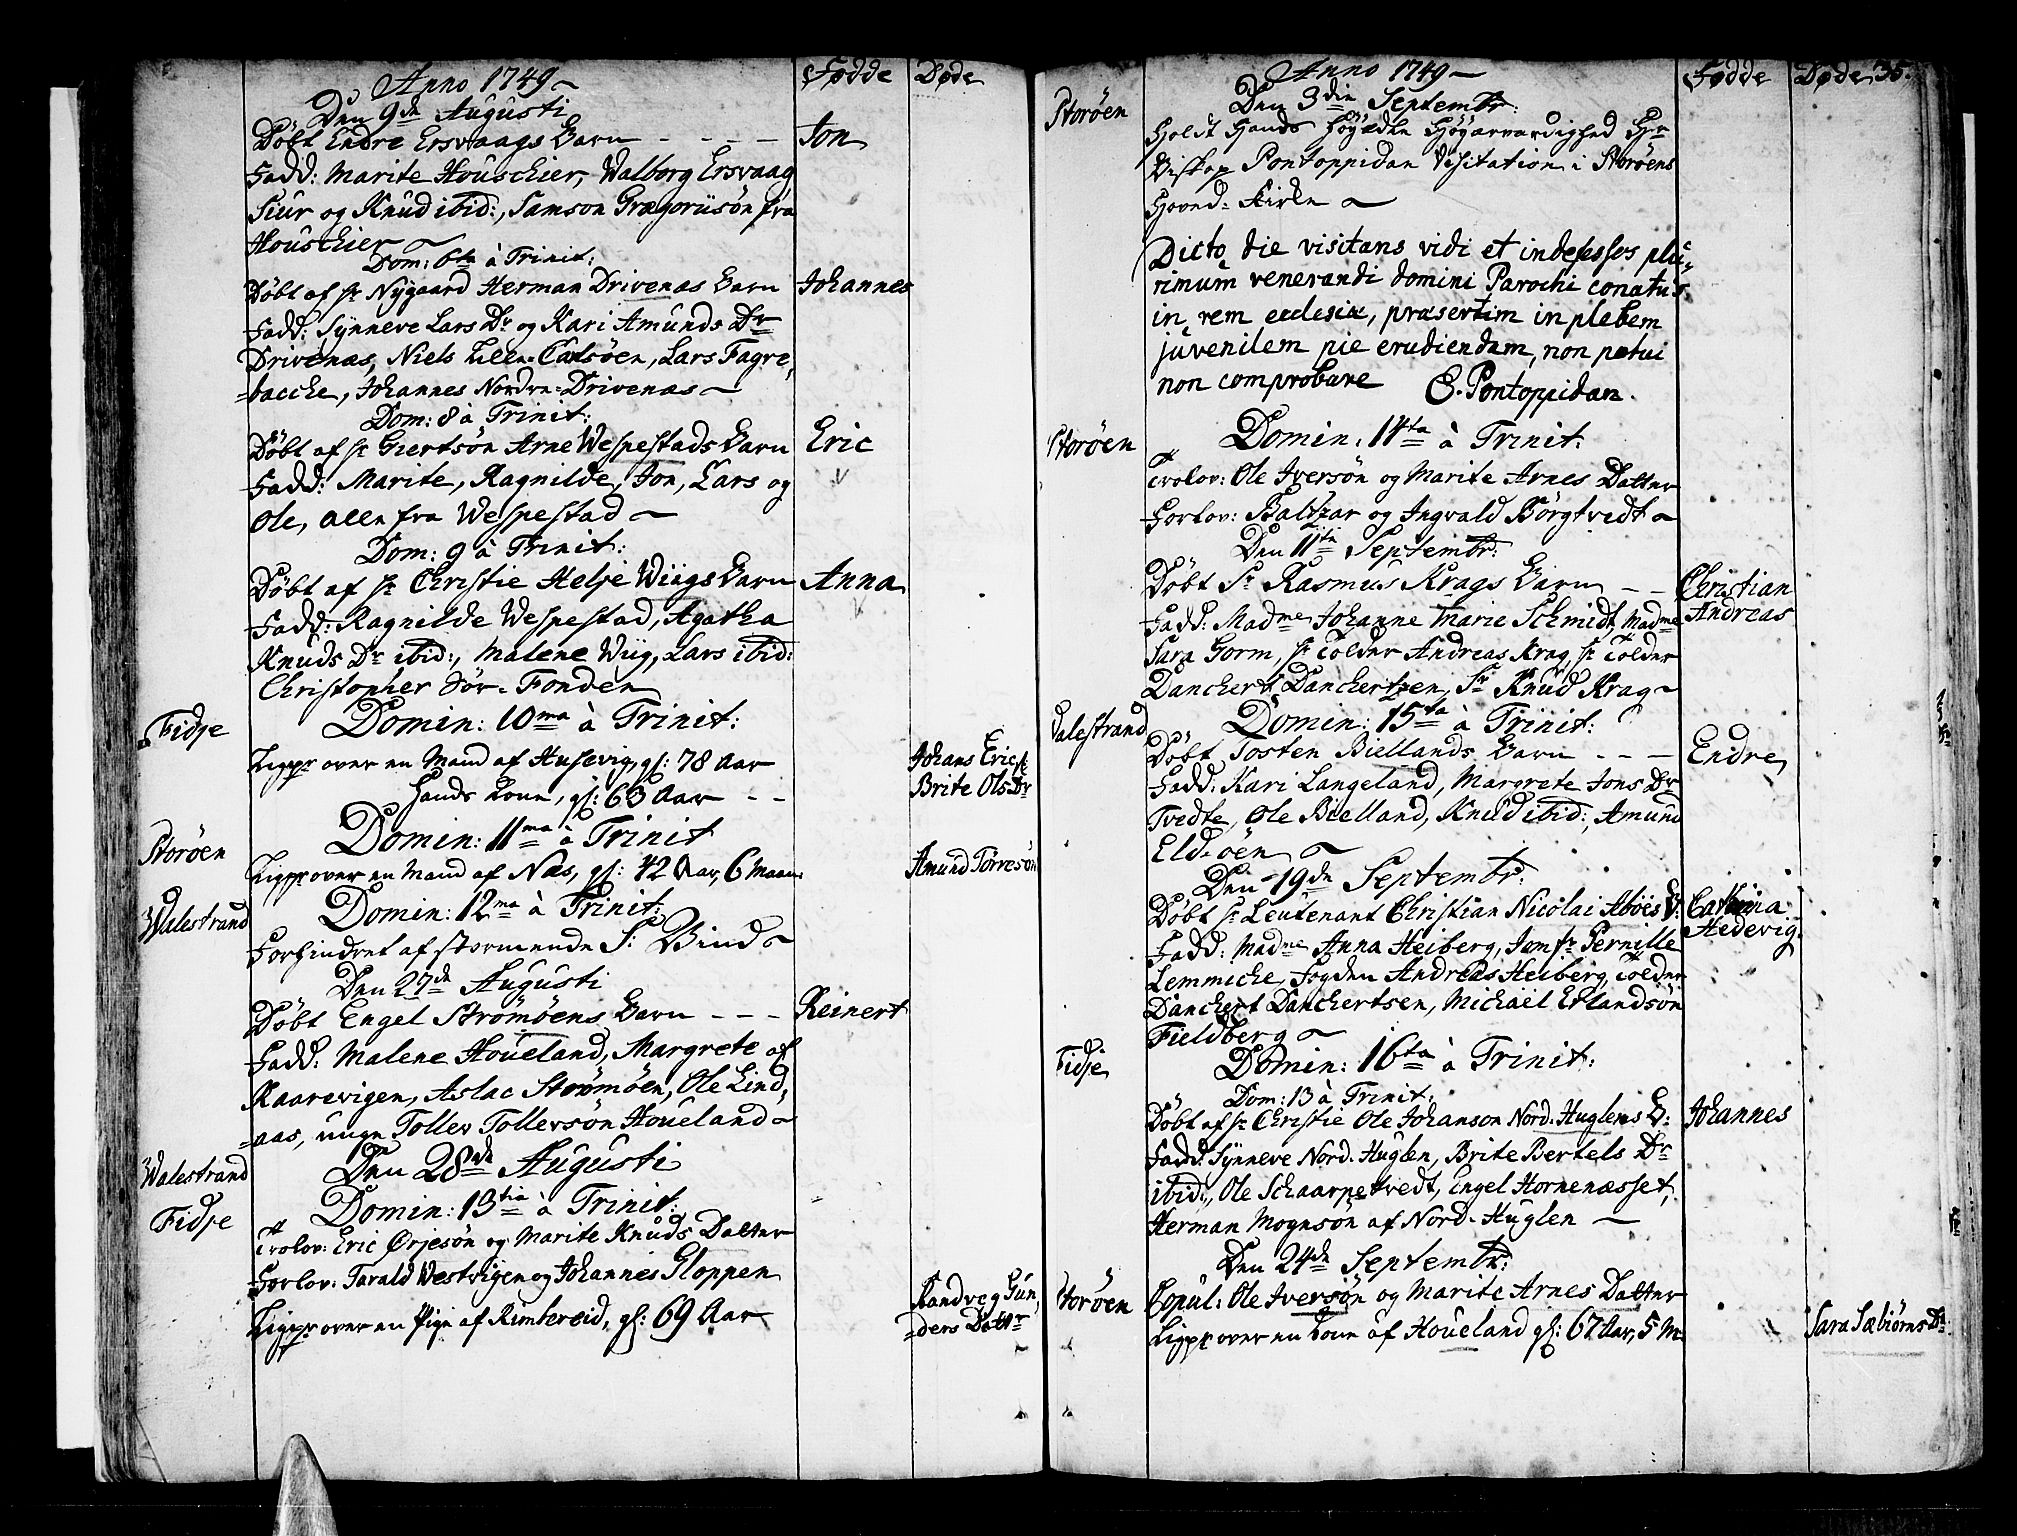 Anno 1749 Fødde Døde
Den 9de Augusti
Døbt Endre Ersvaags Barn - - - - Jon
Fadd: Marite Houschier, Walborg Ersvaag
Siur og Knud ibid:, Samson Grægoriisøn fra
Houschier
Dom: 6ta à Trinit:
Døbt af Hr Nygaard Herman Drivenæs Barn Johannes
Fadd: Synneve Lars Dr og Kari Amunds Dr
Drivenæs, Niels Carlsöen, Lars Fagre,
=bacche, Johannes Nordre=Drivenæs
Dom: 8 à Trinit:
Døbt af Hr Giertsön Arne Wespestads Barn Eric
Fadd: Marite, Ragnilde, Jon, Lars og
Ole, alle fra Wespestad
Dom: 9 à Trinit:
Døbt af Hr Christie Helje Wiigs Barn Anna
Fadd: Ragnilde Wespestad, Agatha
Knuds Dr ibid:, Malene Wiig, Lars ibid:
Christopher Sör-Fonden
Fidje Domin: 10ma à Trinit:
Ligpr over en Mand af Husevig, gl: 78 Aar Johans Erics:
Hands Kone, gl: 63 Aar - - Brite Ols Dr
Storöen Domin: 11ma à Trinit
Ligpr over en Mand af Næs, gl: 42 Aar, 6 Maan: Amund Törresön
Walestrand Domin: 12ma à Trinit:
Forhindret af stormende S: Vind
Den 27de Augusti
Döbt Engel Strömöens Barn - - - Reinert
Fadd: Malene Houeland, Margrete af
Kaarevigen, Aslac Strömöen, Ole Lind,
=aas, unge Tollev Tollevsön Houeland
Walestrand Den 28de Augusti
Fidje Domin: 13tia à Trinit:
Trolov: Eric Ørjesön og Marite Knuds Datter
Forlov: Tarald Westvigen og Johannes Gloppen
Ligpr over en Pige af Rimbereid, gl: 69 Aar Randveg Gun,
=ders Dattr
Anno 1749 Fødde Døde 35.
Storöen Den 3die Septembr:
Holdt Hands Höyædle Höyærværdighed Hr
Biskop Pontoppidan Visitation i Storöens
Hoved-Kirke
Dicto die visitans vidi et indefessos plu-
rimum venerandi domini Parochi conatus
in rem ecclesiæ, præsertim in plebem
juvenilem pie erudiendam, non potui
non comprobare E. Pontoppidan.
Storöen Domin: 14ta à Trinit:
Trolov: Ole Iversön og Marite Arnes Datter
Forlov: Baltzar og Ingvald Börgtvedt
Den 11te Septembr:
Döbt Sr Rasmus Krags Barn - - Christian
Andreas
Fadd: Madme Johanne Marie Schmidt, Madme
Sara Gorm, Hr Tolder Andreas Krag, Hr Tolder
Danchert Danchertzen, Sr Knud Krag
Valestrand Domin: 15ta à Trinit:
Döbt Tosten Biellands Barn - - - Endre
Fadd: Kari Langeland, Margrete Jons Dr
Tvedte, Ole Bielland, Knud ibid:, Amund
Eld-öen
Den 19de Septembr:
Döbt Hr Leutenant Christian Nicolai Aböes B: Cathrina
Hedevig.
Fadd: Madme Anna Heiberg, Jomfr Pernille
Lemmiche, Fogden Andreas Heiberg, Tolder
Danchert Danchertsen, Michaël Erlandsön
Fieldberg
Fidje Domin: 16ta à Trinit:
Dom: 13 à Trinit:
Döbt af Hr Christie Ole Johanson Nord-Huglens B: Johannes
Fadd: Synneve Nord-Huglen, Brite Bertels Dr
ibid:, Ole Schaarpetvedt, Engel Hornenæsset,
Herman Mognsön af Nord-Huglen
Den 24de Septembr:
Storöen Copul: Ole Iversön og Marite Arnes Datter
Ligpr over en Kone af Houeland gl: 67 Aar, 5 M Sara Sæbiörns Dr